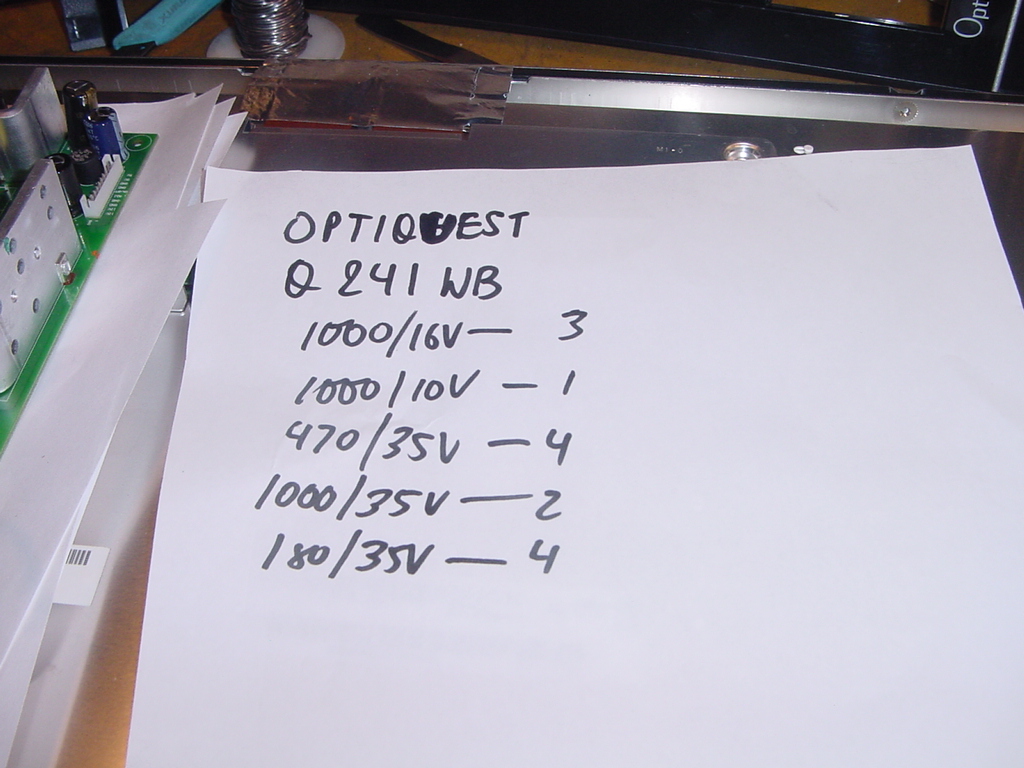 Opt
OPTIQUEST
Q 241 WB
1000/16V — 3
1000/10V — 1
470/35V — 4
1000/35V — 2
180/35V — 4